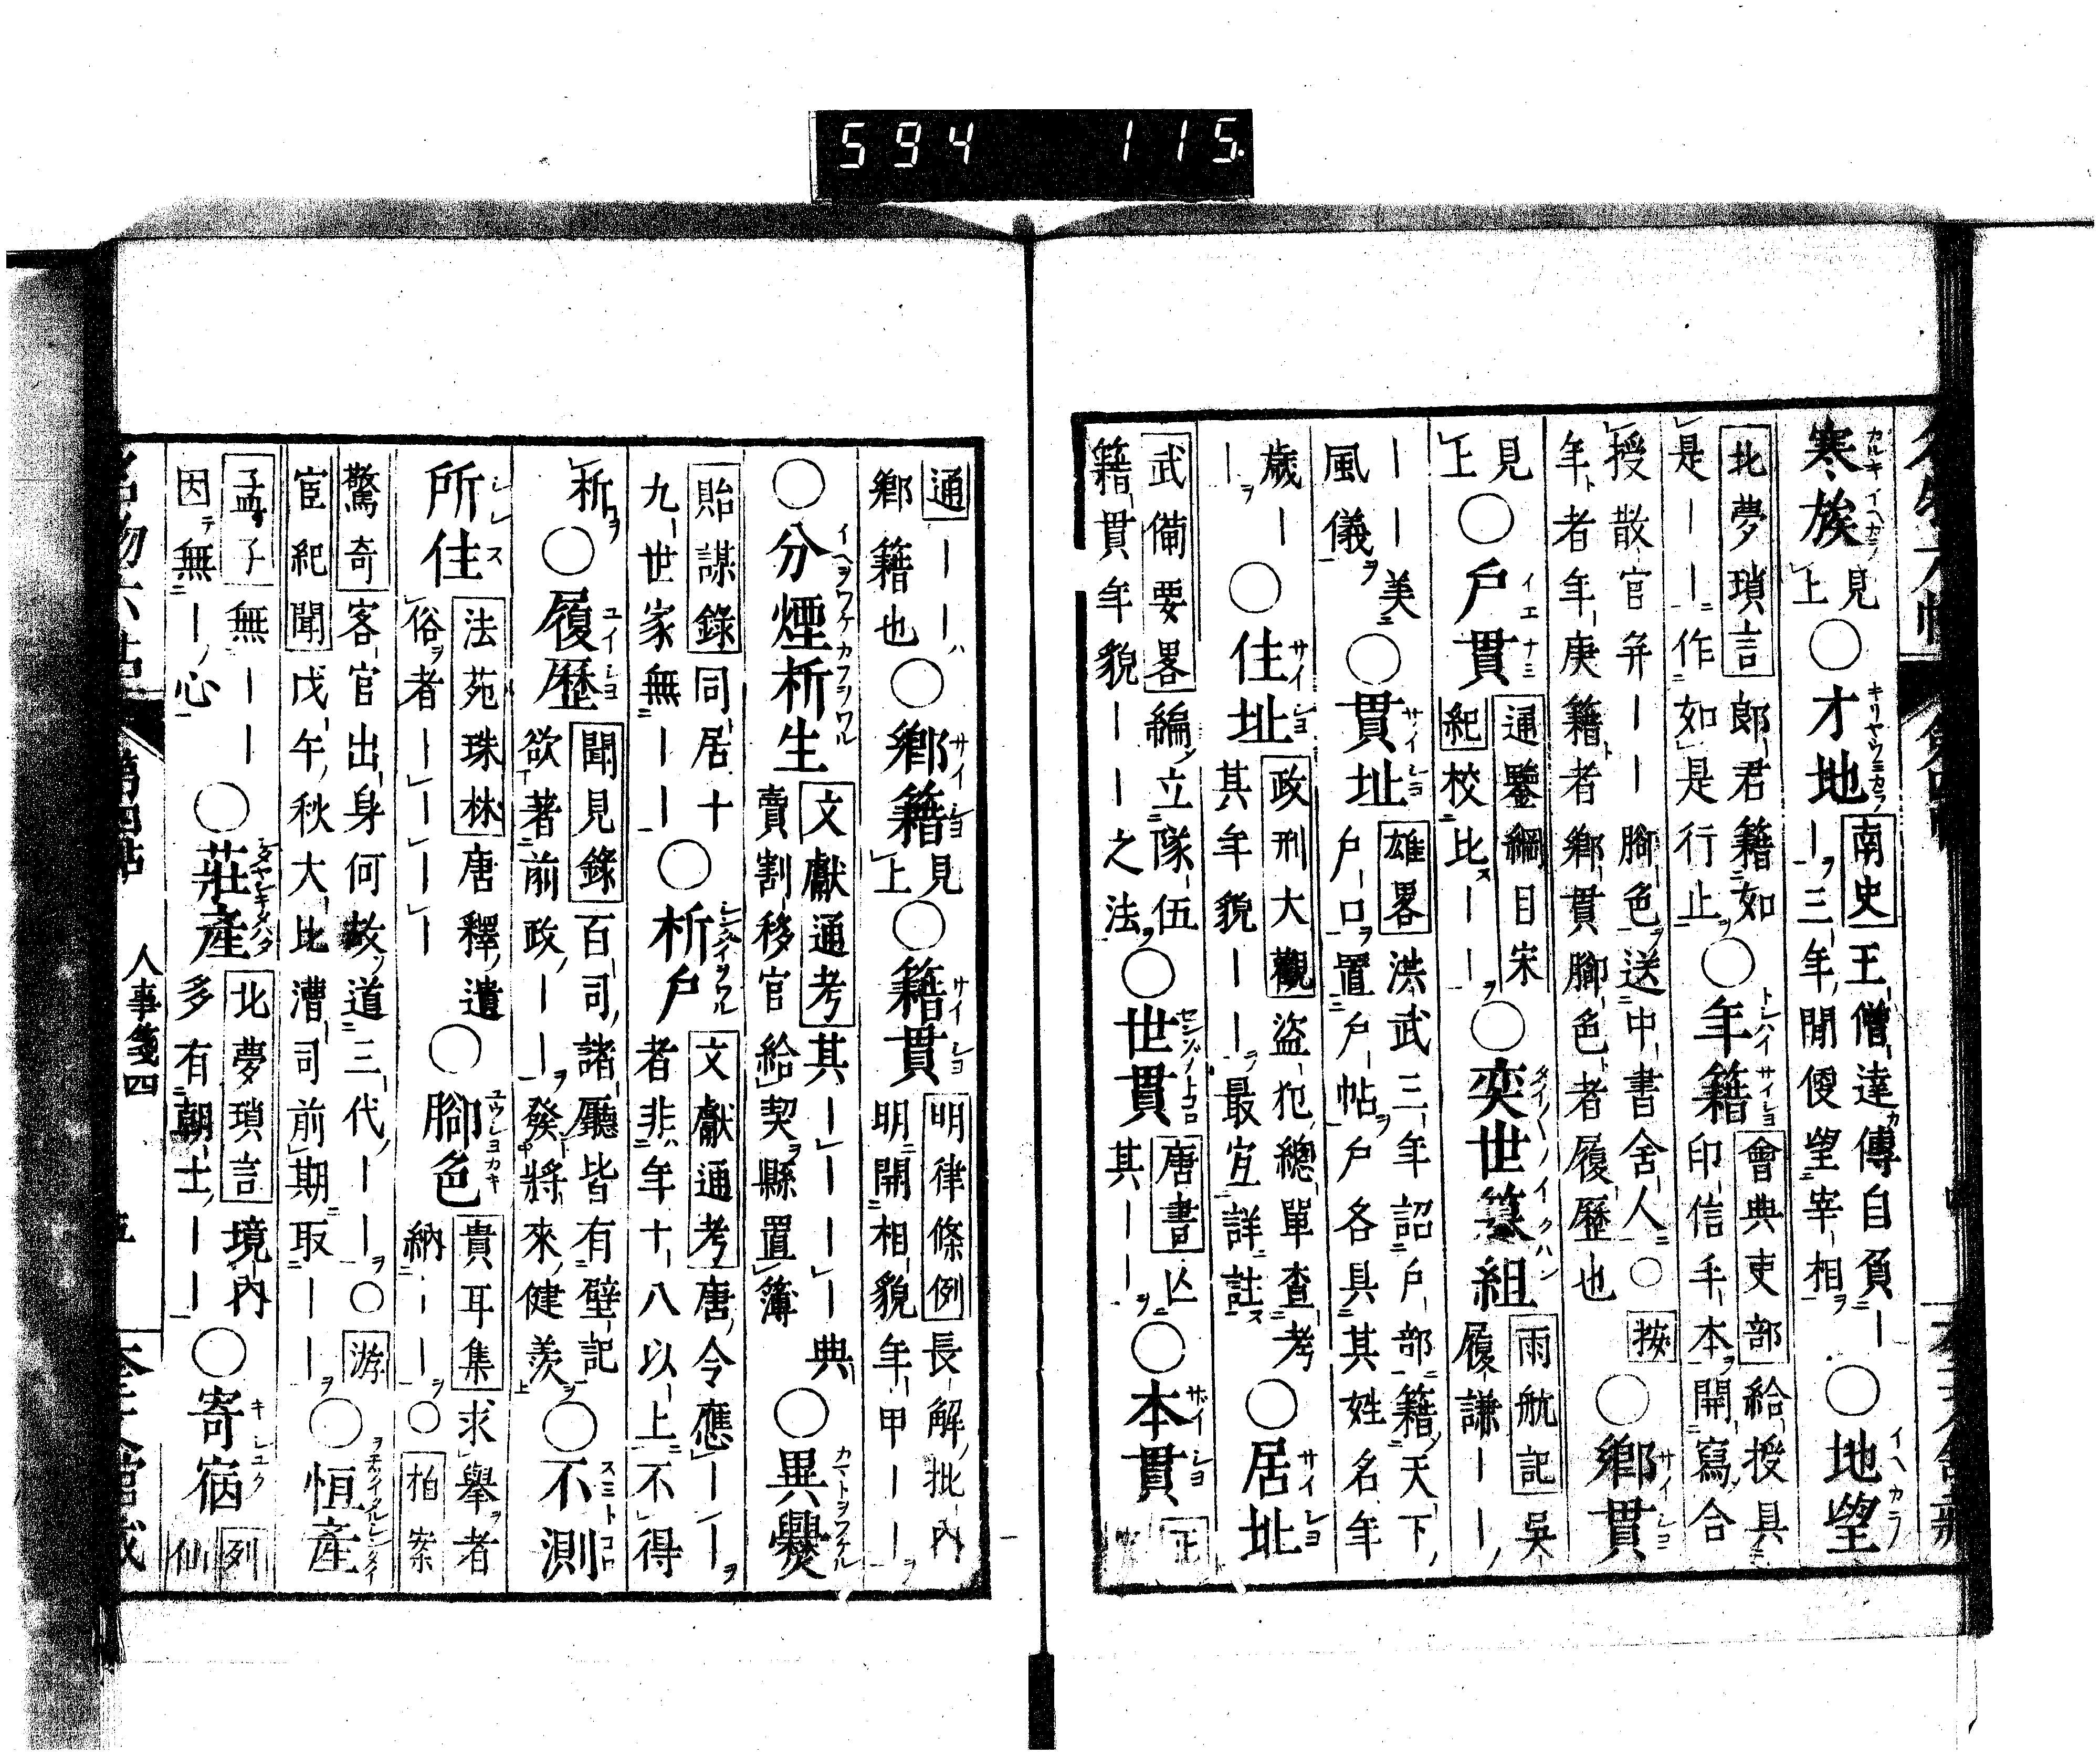 寒族 見上 ○才地 南史王僧達傳自負ーー三年間便望宰相 ○地望
北夢瑣言郎君籍如是ーーー作如是行止 ○年籍 會典吏部給授具印信手本開寫合
授散官弁ーー腳色送中書舍人○按年者年庚籍者鄉貫腳色者履歷也 ○鄉貫
見上 ○戶貫 通鑒綱目宋紀校比ーー ○奕世簪組 雨航記吳履謙ーー
ーー美風儀 ○貫址 雄畧洪武三年詔戶部籍天下戶口置戶帖戶各具其姓名年
歲ーー ○住址 政刑大觀盜犯總單查考其年貌ーー最宜詳註 ○居址
武備要畧編立隊伍籍貫年貌ーー之法 ○世貫 唐書亾其ーー ○本貫
通ーー鄉籍也 ○鄉籍 見上 ○籍貫 明律條例長解批內明開相貌年甲ーー
○分煙析生 文獻通考其ーーーー典賣割移官給契縣置簿 ○異爨
貽謀錄同居十九世家無ーー ○析戶 文獻通考唐令應ーー者非年十八以上不得
析 ○履歷 聞見錄百司諸廳皆有壁記欲著前政ーー發將來健羨 ○不測
所住 法苑珠林唐釋遺俗者ーーーー ○腳色 貴耳集求舉者納ーー○柏案
驚奇客官出身何故道三代ーー○游宦紀聞戊午秋大比漕司前期取ーー ○恒產
孟子無ーー因無ー心 ○莊產 北夢瑣言境內多有朝士ーー ○寄宿 列仙
名物六帖 第四帖 人事箋四 五
594 115